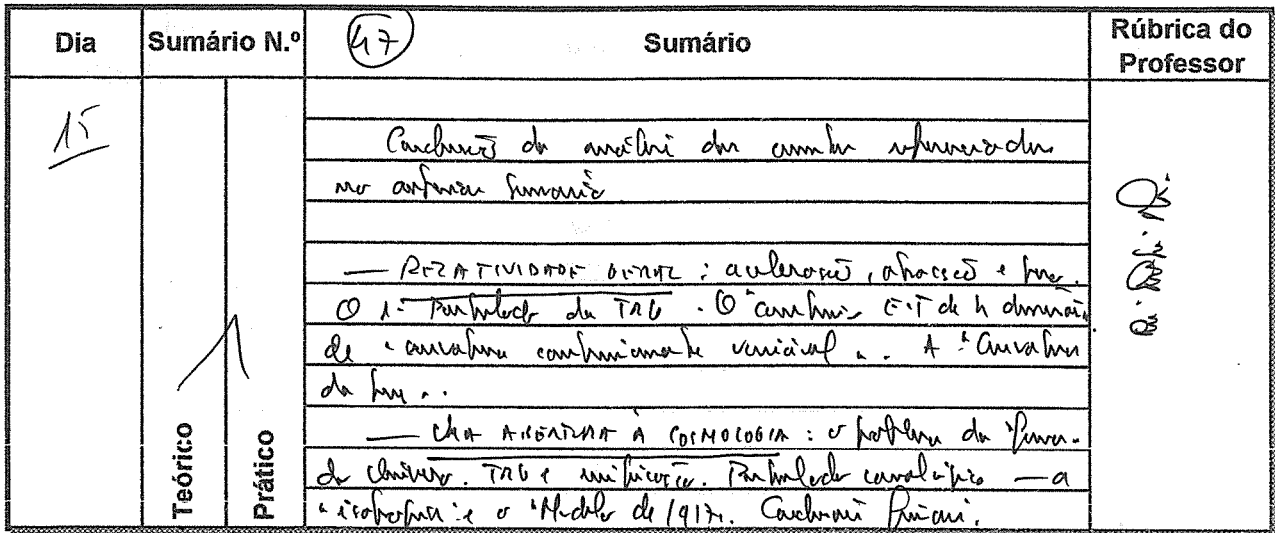 Dia Sumário N.º 47 Sumário Rúbrica do Professor
15
Conclusão da análise dos
no anterior Sumário
— RELATIVIDADE GERAL : aceleração, atracção e
O 1º Postulado da TRG . O "continuo E.T de 4 dimensões
de "curvatura continuamente variável". A "Curvatura
da luz".
— UMA ABERTURA À COSMOLOGIA : o problema da
do Universo. TRG e unificação. Postulado cosmológico — a
"isotropia" e o "Modelo de 1917". Conclusões finais.
Teórico
Prático